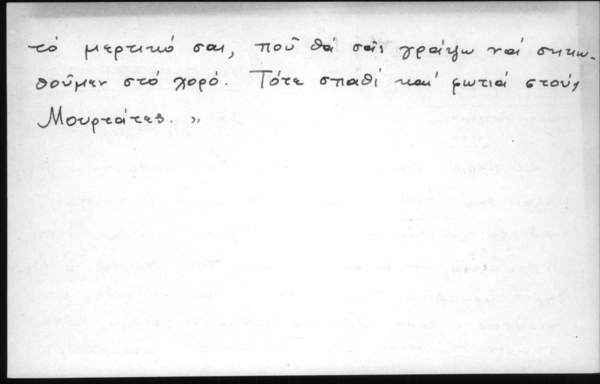 τό μερτικό σας, ποῦ θά σᾶς γράψω νά σηκω-
θοῦμεν στό χορό. Τότε σπαθί καί φωτιά στούς
Μουρτάτες. »